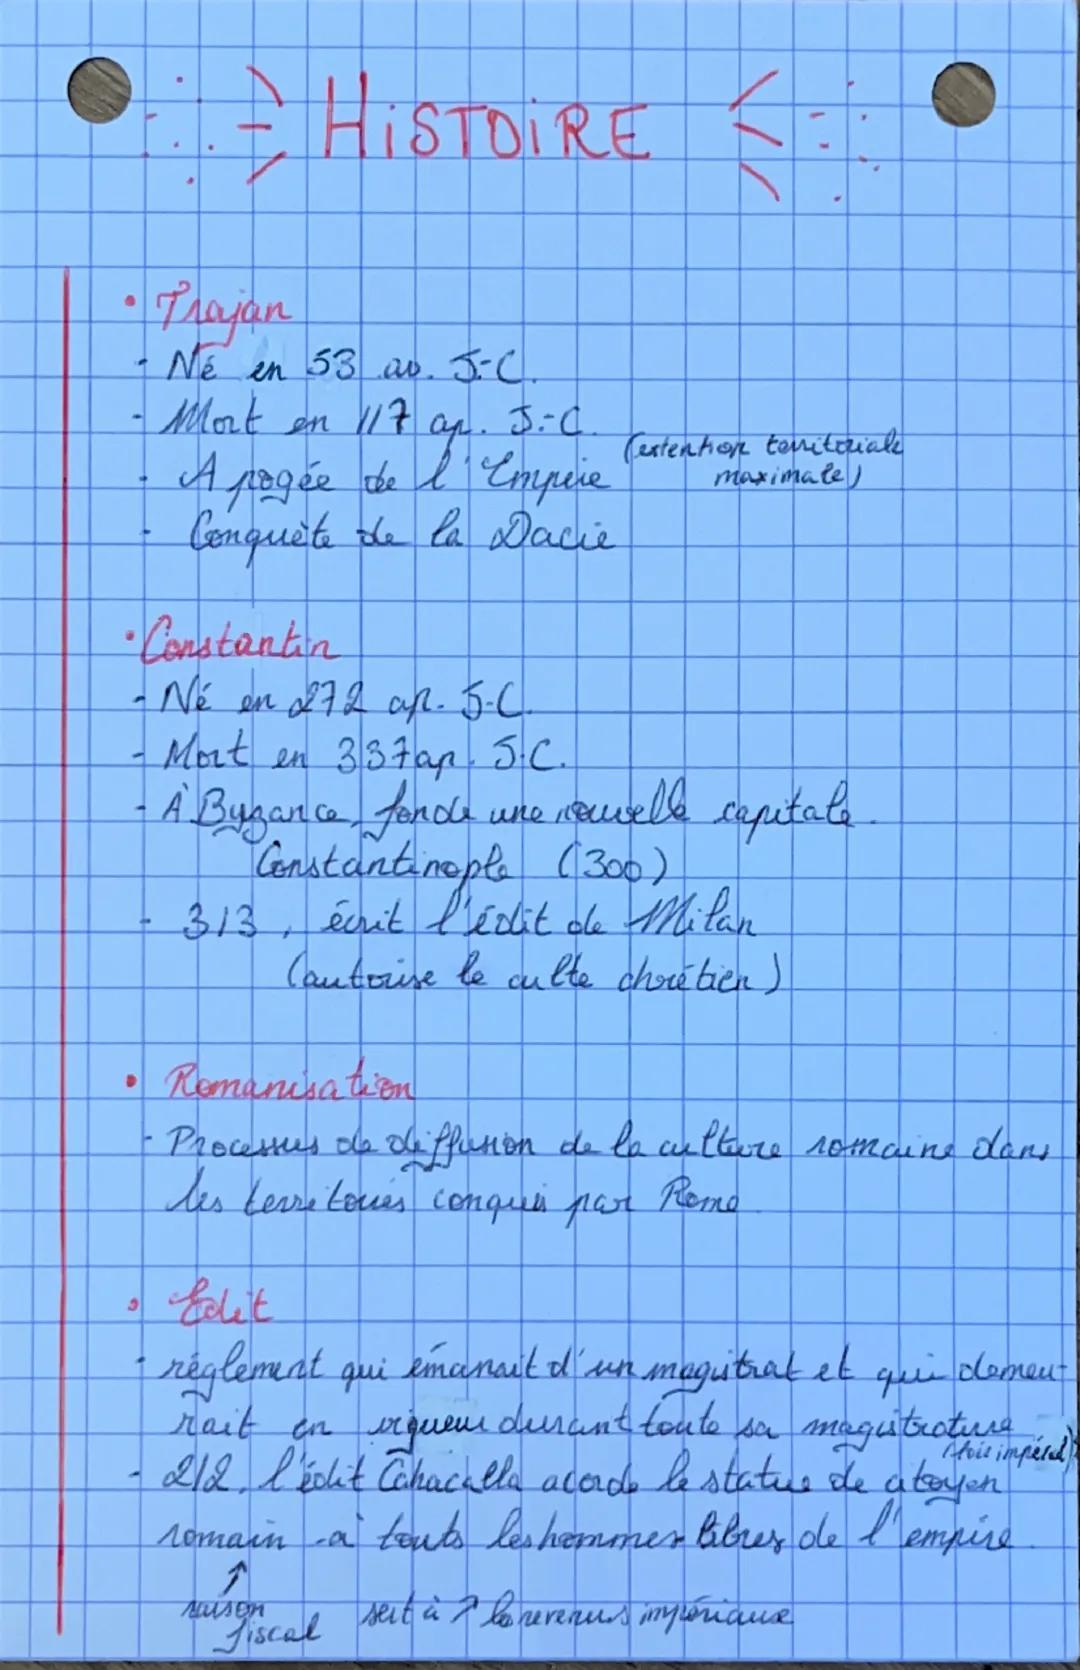 HiSTOiRE
• Trajan
- Né en 53 av. J.-C.
- Mort en 117 ap. J.-C.
- Apogée de l'Empire (extention territoriale
maximale)
- Conquête de la Dacie
• Constantin
- Né en 272 ap. J-C.
- Mort en 337 ap. J.C.
- À Byzance, fonde une nouvelle capitale.
Constantinople (300)
- 313, écrit l'édit de Milan
(autorise le culte chrétien)
• Romanisation
- Processus de diffusion de la culture romaine dans
les territoires conquis par Rome
• Edit
- réglement qui émanait d'un magistrat et qui demeu-
rait en vigueur durant toute sa magistrature
(lois impérial)
- 212, l'édit Cahacalla acorde le statue de citoyen
romain à touts les hommes libres de l'empire.
↑
raison
fiscal sert à ↗ les revenus impériaux